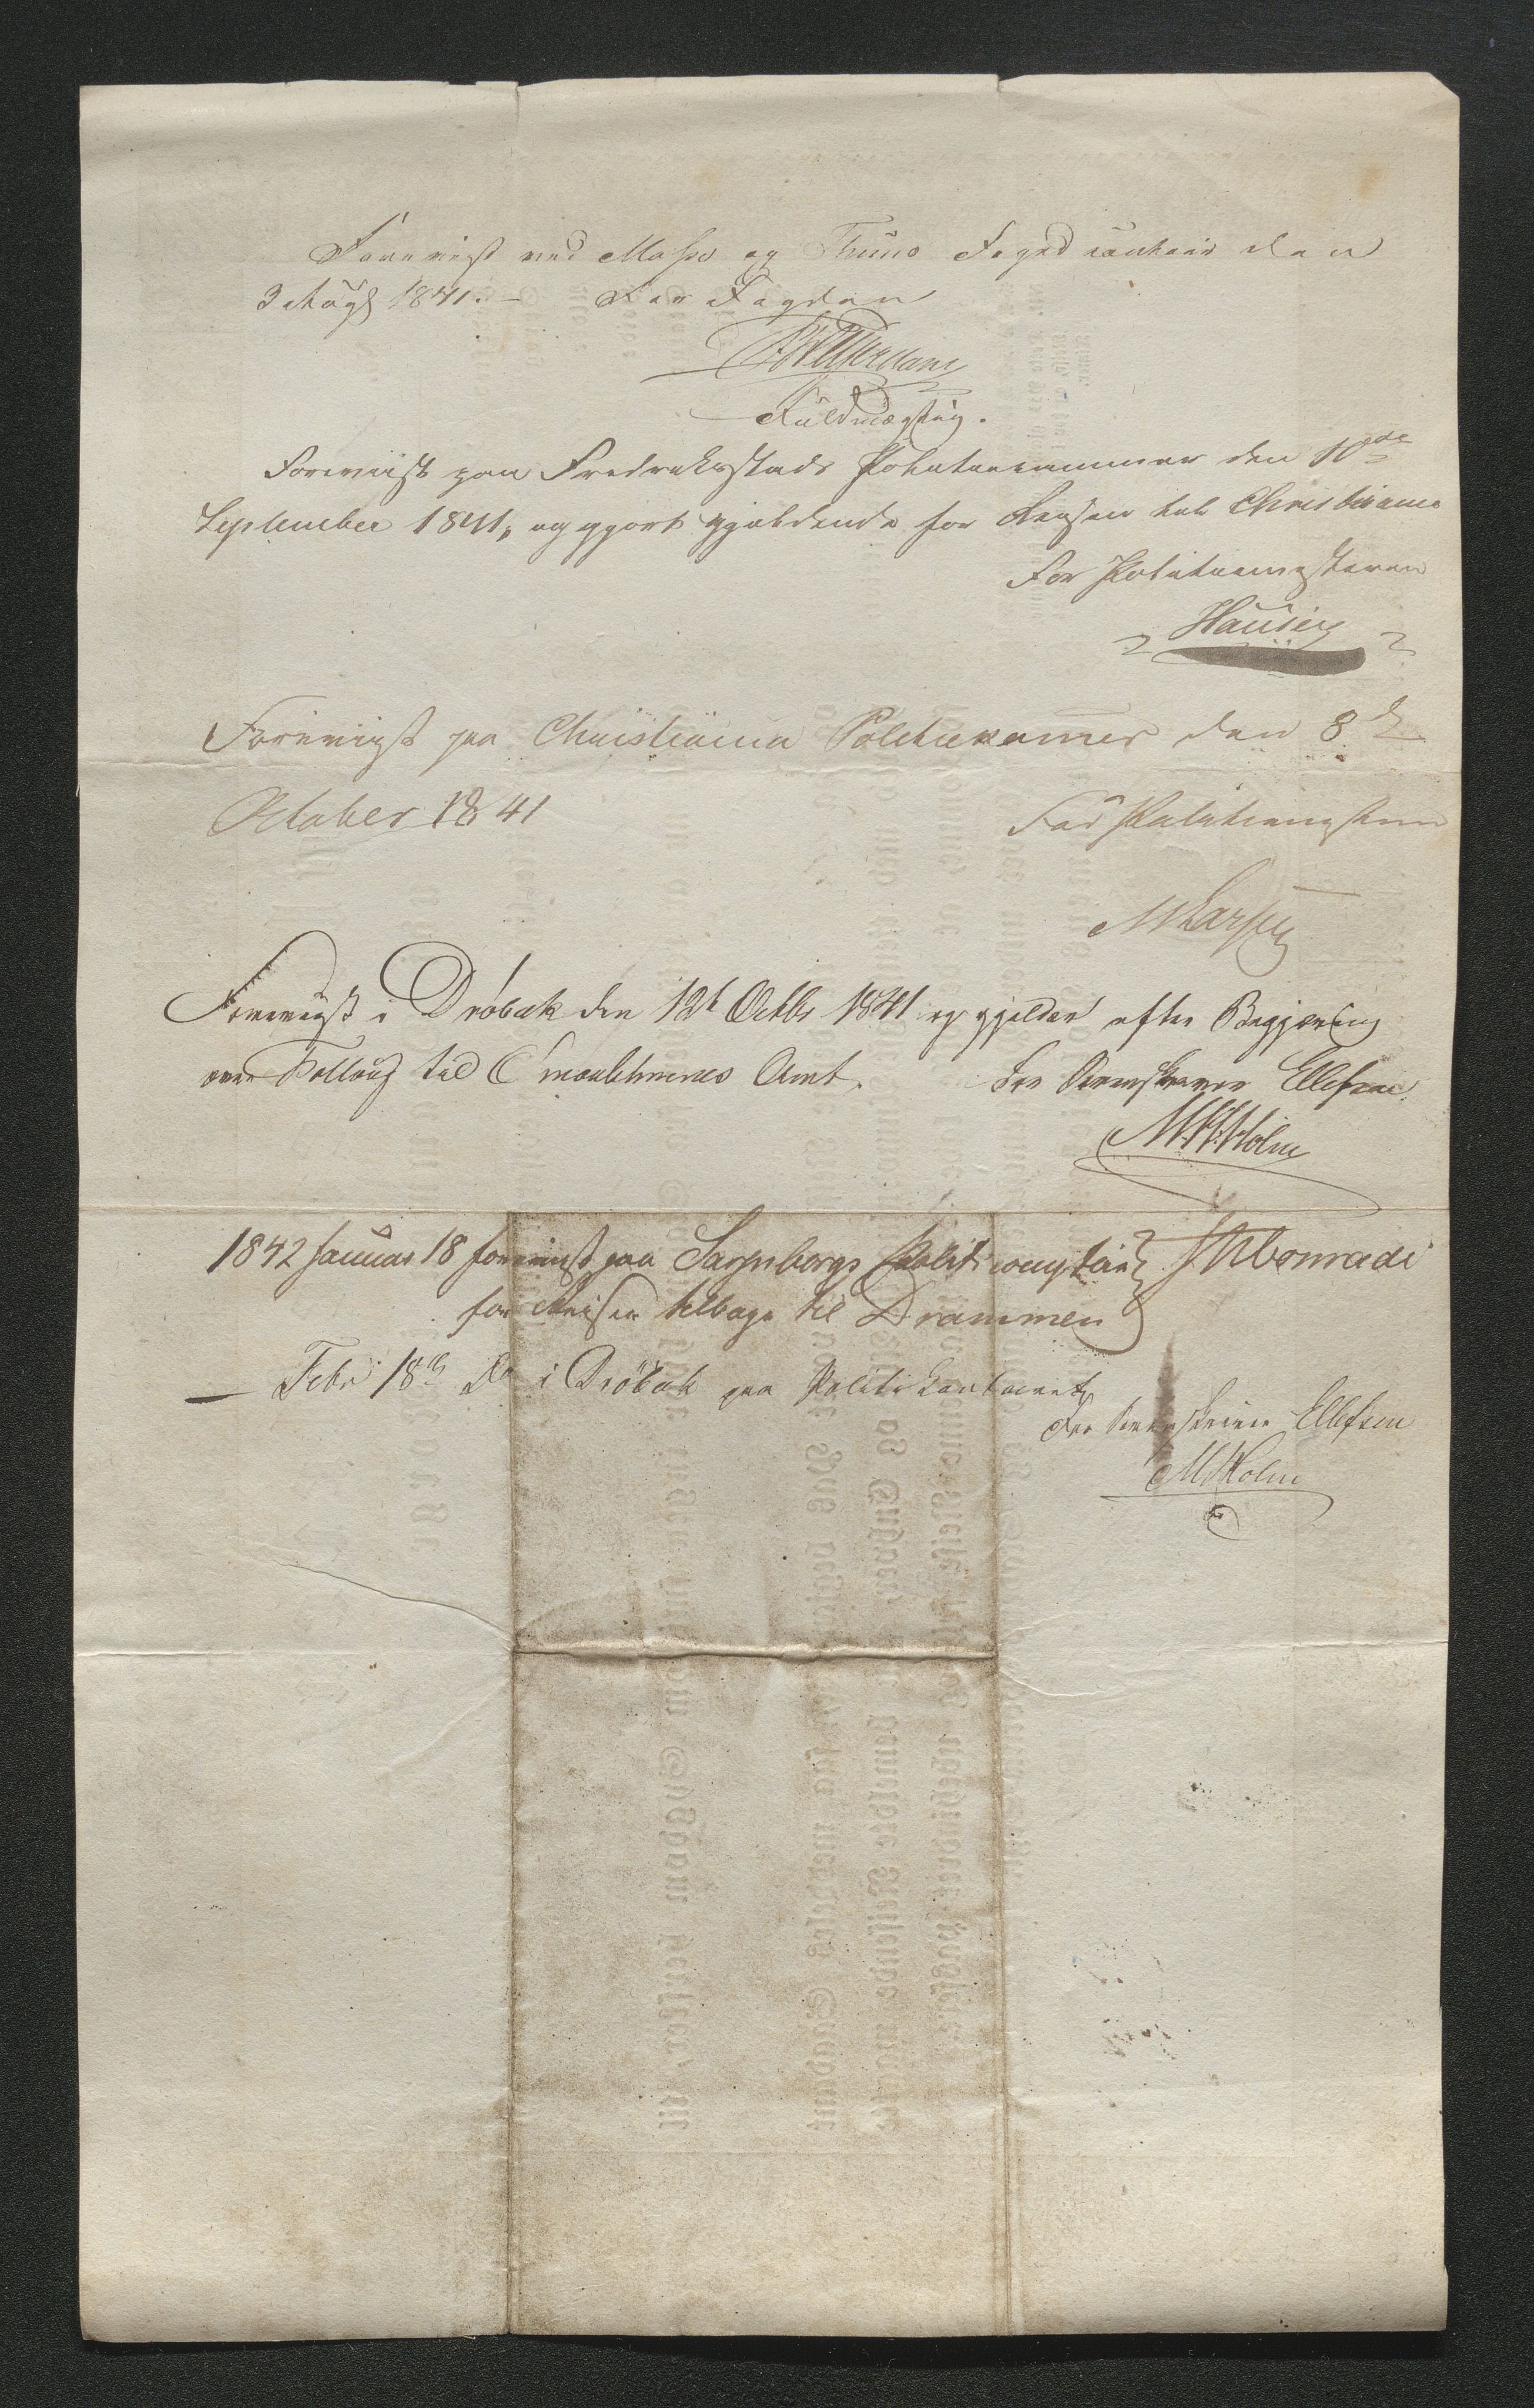 Foreviist ved Mosse og Thunø Fogedcontoir den
3 Aug 1841. – For Fogden
Fuldmægtig.
Foreviist paa Fredrikstads Politiekammer den 10de
September 1841, og gjort gjældende for Reisen til Christiania
For Politiemesteren
Hansen
Foreviist paa Christiania Politiekammer den 8de
October 1841 For Politiemesteren
M Larsen
Foreviist i Drøbak den 12te Octbr 1841 og gjælder efter Begjæring
over Folloug til Smaalehnenes Amt. For Sorenskriver Ellefsen
M.H. Holm
1842 Januar 18 foreviist paa Sarpsborgs Politicomptoir JNConradi
for Reisen tilbage til Drammen
– Febr 18de Do i Drøbak paa Politikontoret
For Sorenskriver Ellefsen
MHolm